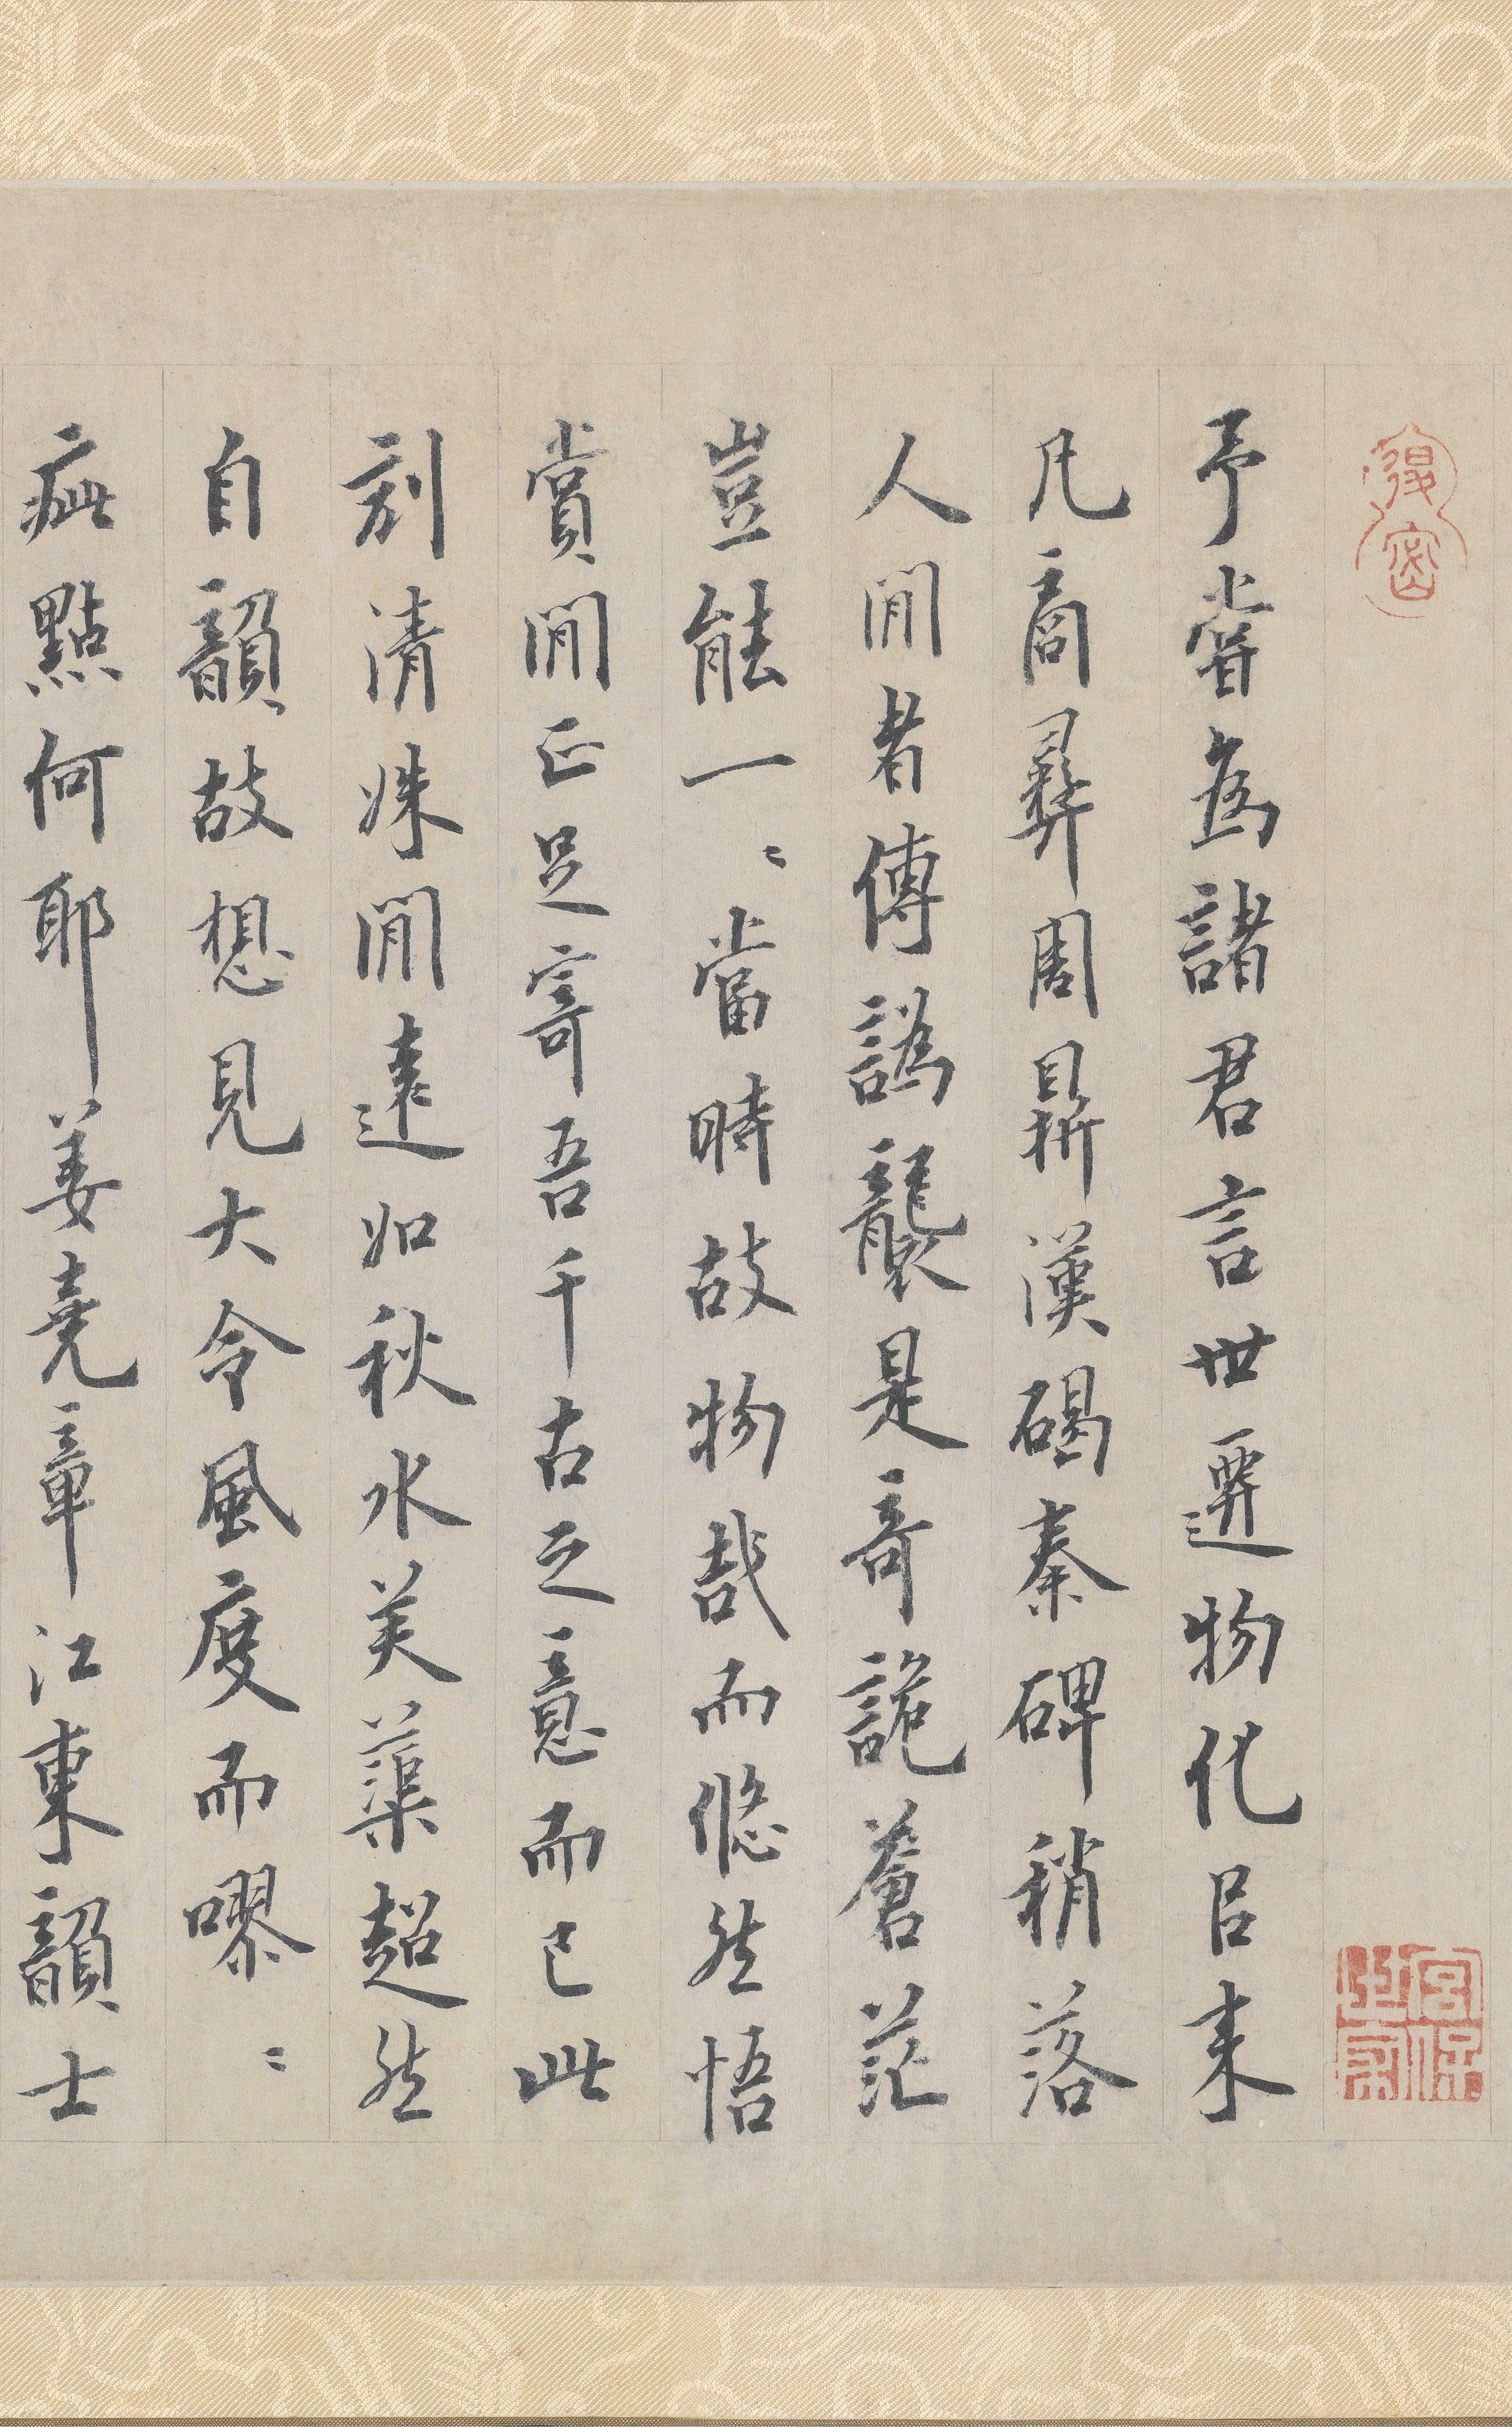 予嘗為諸君言世遷物化㠯来
凡商彝周鼎漢碣秦碑稍落
人間者傳譌襲是奇詭蒼茫
豈能一〻當時故物哉而悠然悟
賞間正足寄吾千古之意而已此
刻清姝閒遠如秋水美蕖超然
自韻故想見大令風度而嘐〻
疵點何耶姜堯章江東韻士